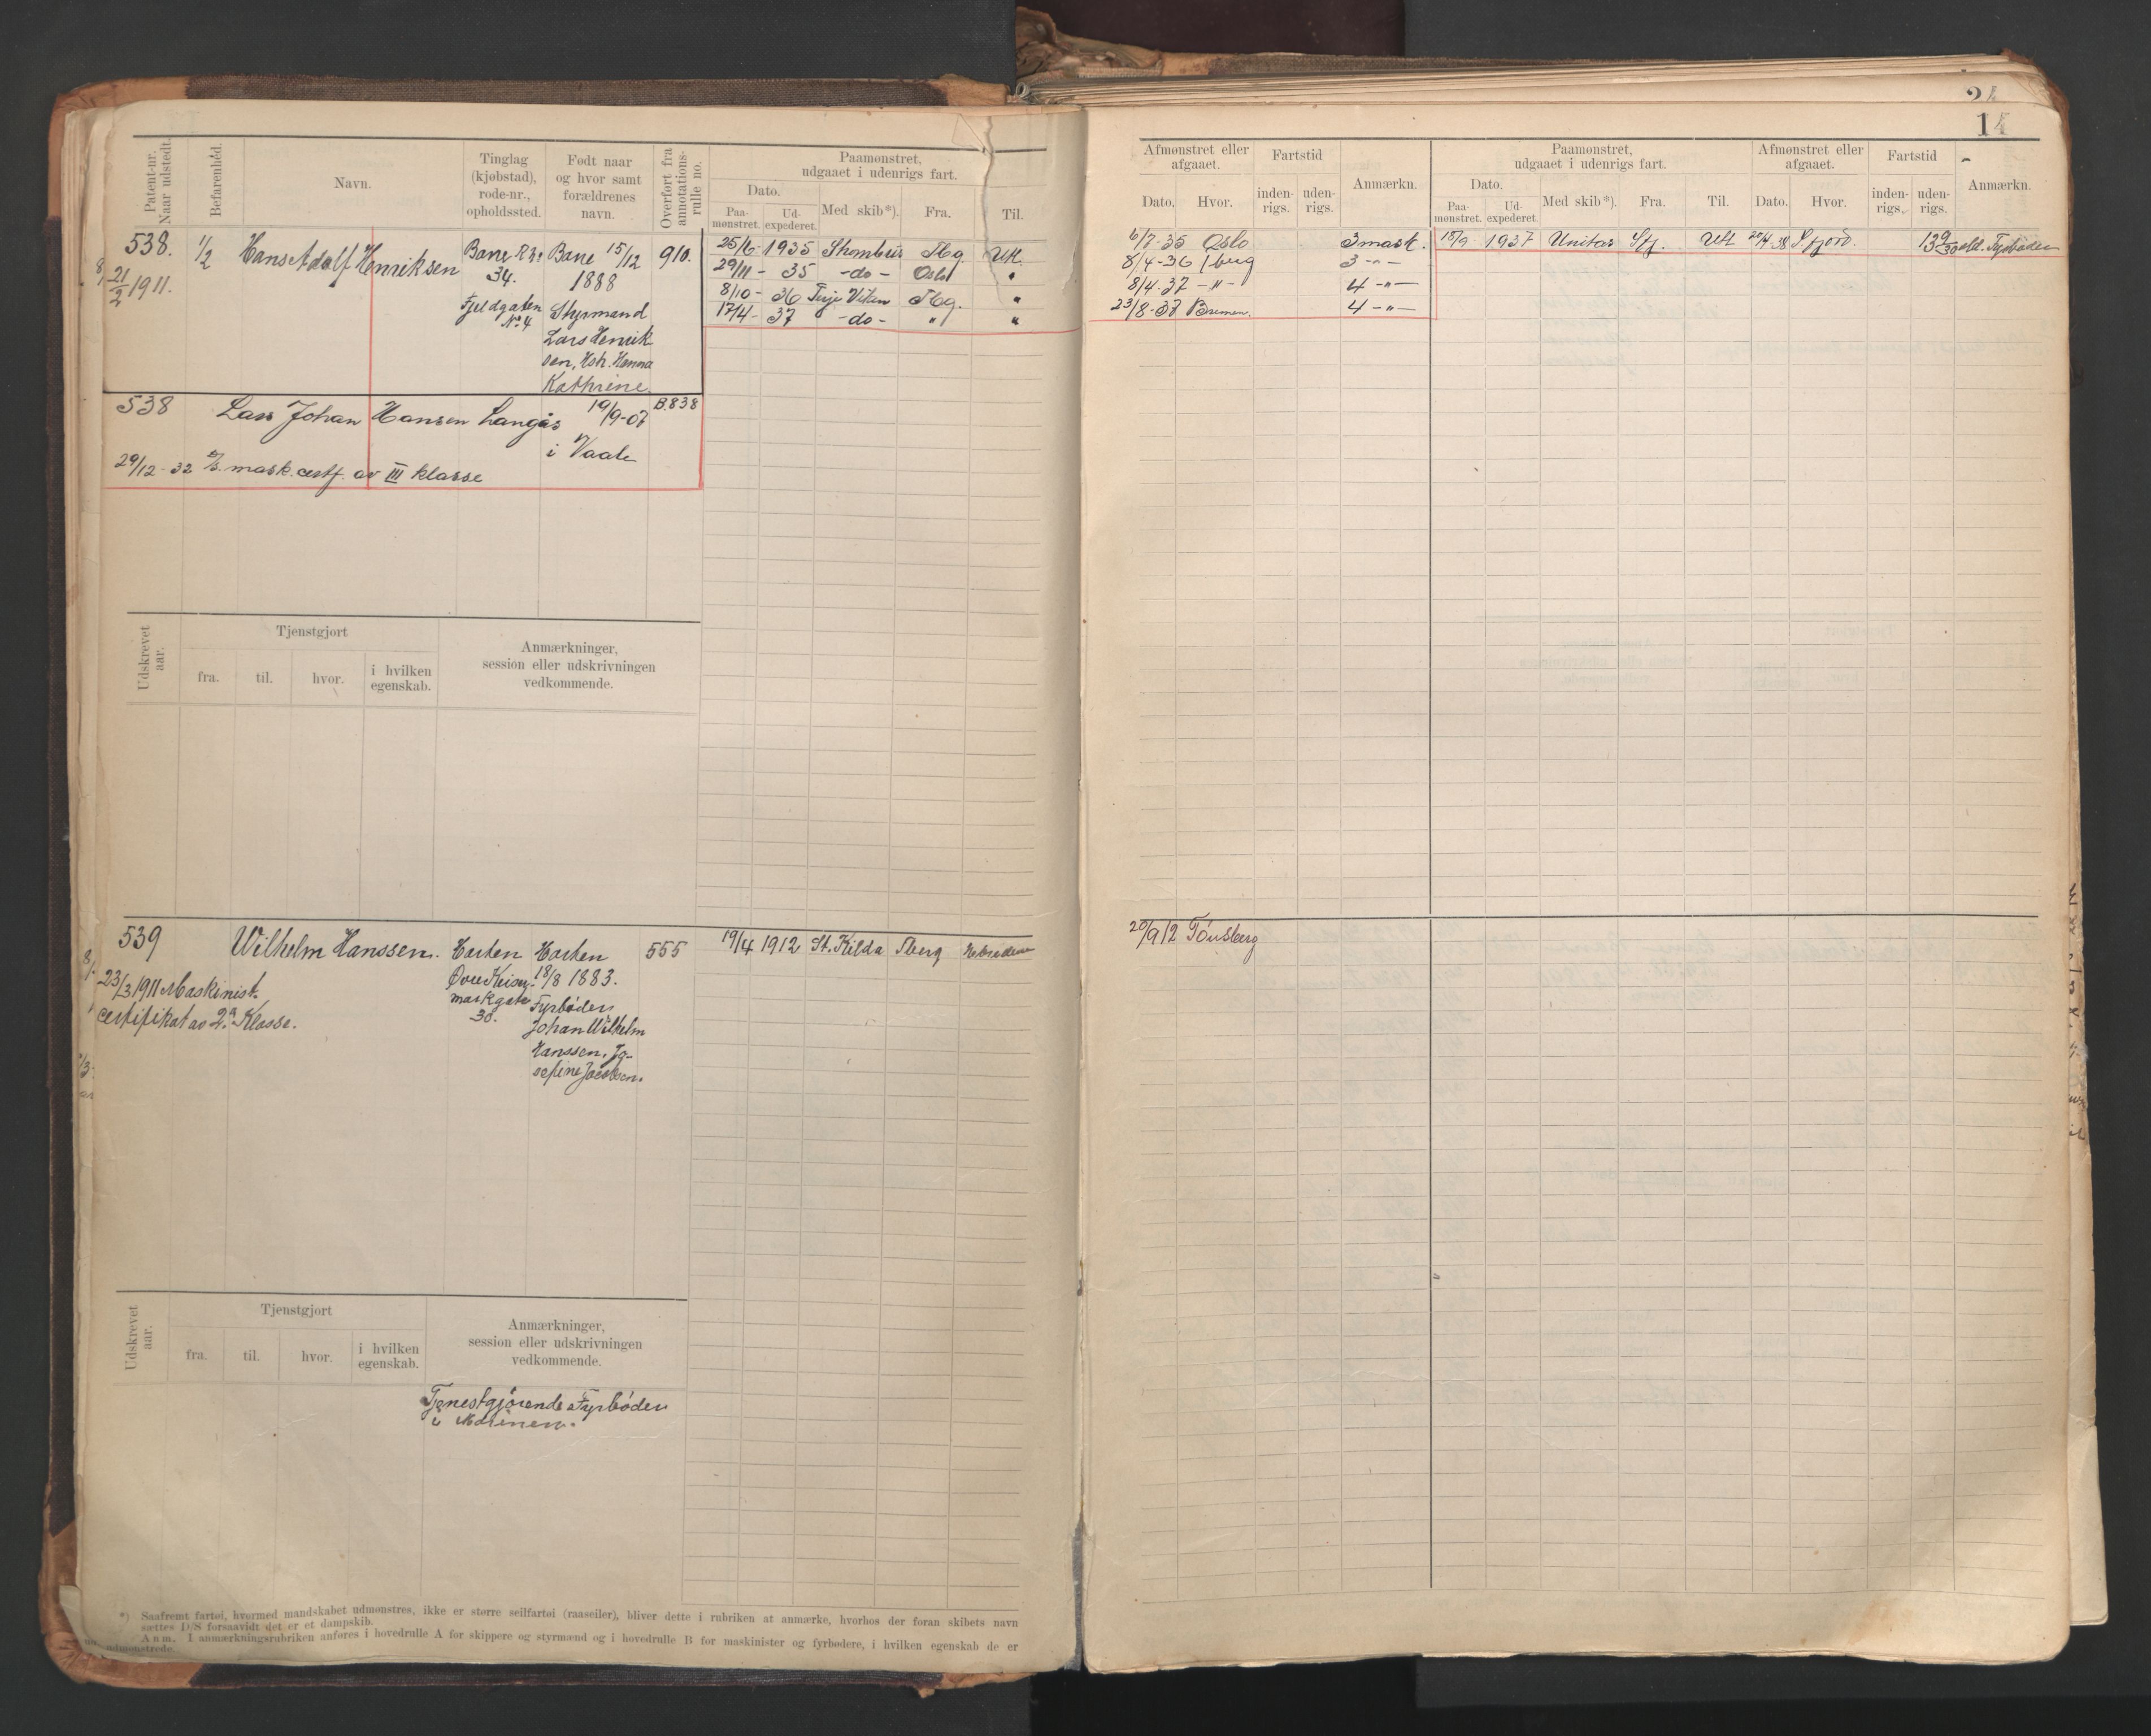 Patent-nr.
Naar udstedt.
Befarenhed.
Navn.
Tinglag
(kjøbstad),
rode-nr.,
opholdssted.
Født naar
og hvor samt
forældrenes
navn.
Overført fra
annotations-
rulle no.
Paamønstret,
udgaaet i udenrigs fart.
Dato.
Paa-
mønstret.
Ud-
expederet.
Med skib*).
Fra.
Til.
538.
21/2 1911.
1/2
Hans Adolf Henriksen
34.
Fjeldgaten
No 4
15/12
1888
Styrmand
Lars Henrik-
sen, Hstr. Hanna
Kathrine.
910.
25/6 - 1935
29/11 - 35 -do- Oslo "
8/10 - 36 Terje Viken Tbg. "
17/4 - 37 -do- " "
538 Lars Johan Hansen Langås 19/9-07 B.838
i Vaale
29/12-32 mask. certf. av III klasse
Udskrevet
aar.
Tjenstgjort
fra.
til.
hvor.
i hvilken
egenskab.
Anmærkninger,
session eller udskrivningen
vedkommende.
539 Wilhelm Hanssen. Horten Horten 555 19/4 1912 St. Kilda Tberg
23/3 1911 Maskinist.
certifikat av 2. Klasse.
markgate
30.
18/8 1883.
Fyrbøder
Johan Wilhelm
Hanssen, Jo-
sefine Jacobsen.
Udskrevet
aar.
Tjenstgjort
fra.
til.
hvor.
i hvilken
egenskab.
Anmærkninger,
session eller udskrivningen
vedkommende.
Tjenestgjørende Fyrbøder
i Marinen.
*) Saafremt fartøi, hvormed mandskabet udmønstres, ikke er større seilfartøi (raaseiler), bliver dette i rubriken at anmærke, hvorhos der foran skibets navn
sættes D/S forsaavidt det er et dampskib.
Anm. I anmærkningsrubriken anføres i hovedrulle A for skippere og styrmænd og i hovedrulle B for maskinister og fyrbødere, i hvilken egenskab de er
udmønstrede.
Afmønstret eller
afgaaet.
Dato.
Hvor.
Fartstid
inden-
rigs.
uden-
rigs.
Anmærkn.
Paamønstret,
udgaaet i udenrigs fart.
Dato.
Paa-
mønstret.
Ud-
expederet.
Med skib*).
Fra.
Til.
Afmønstret eller
afgaaet.
Dato.
Hvor.
Fartstid
inden-
rigs.
uden-
rigs.
Anmærkn.
6/7-35 Oslo 3 mask. 18/9 1937 Unitas
8/4-36 3 -"-
8/4-37 -"- 4 -"-
23/8-37 Bremen. 4 -"-
20/9 12 Tönsberg